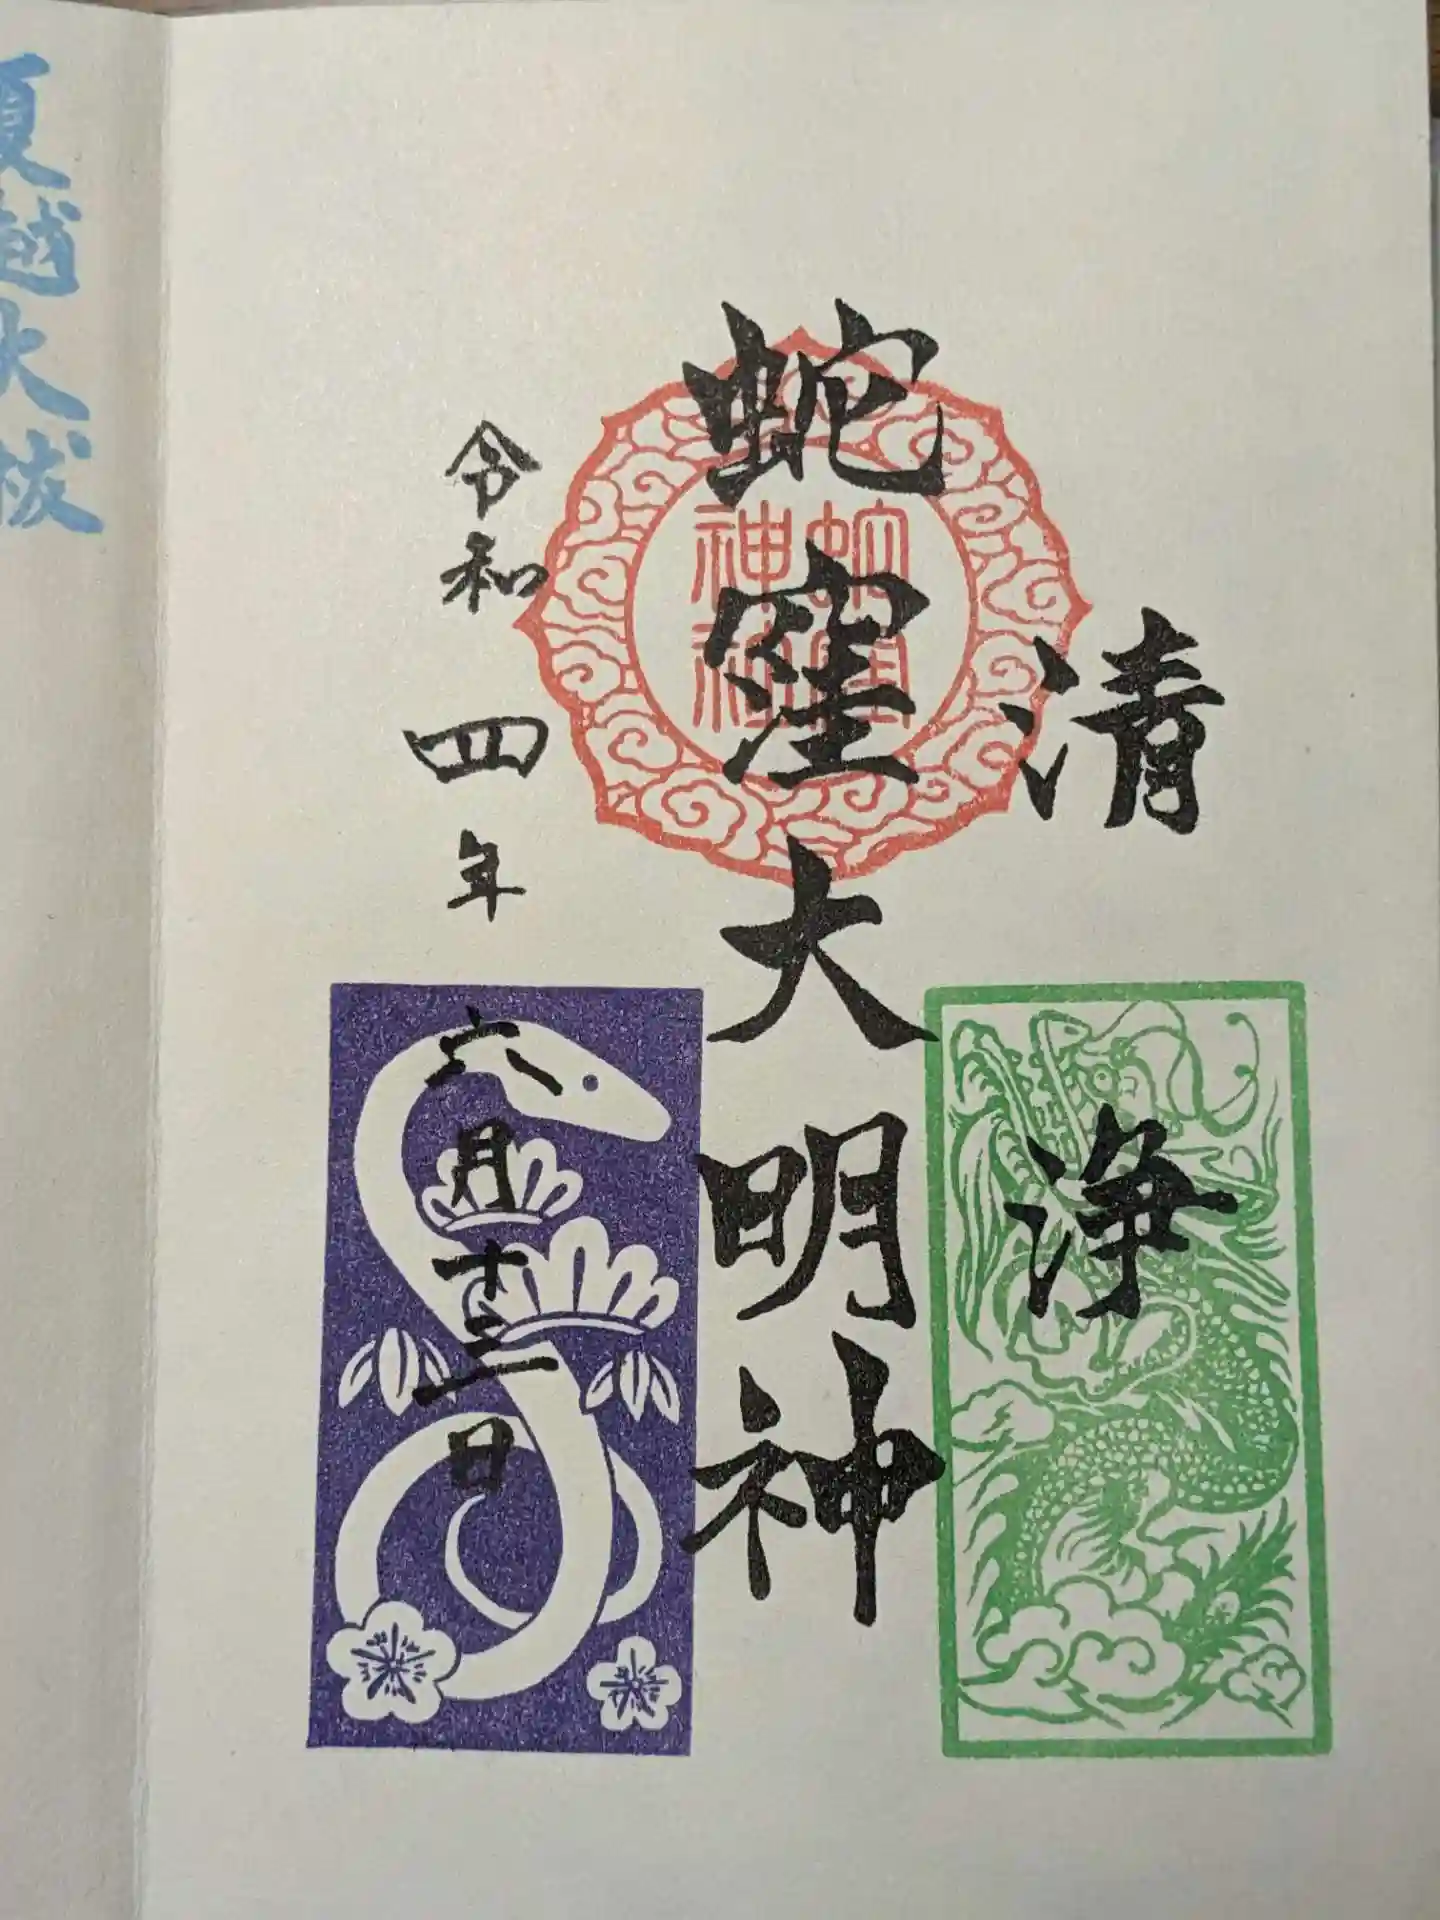 清浄
蛇窪大明神
蛇窪神社
令和四年六月十三日
夏越大祓